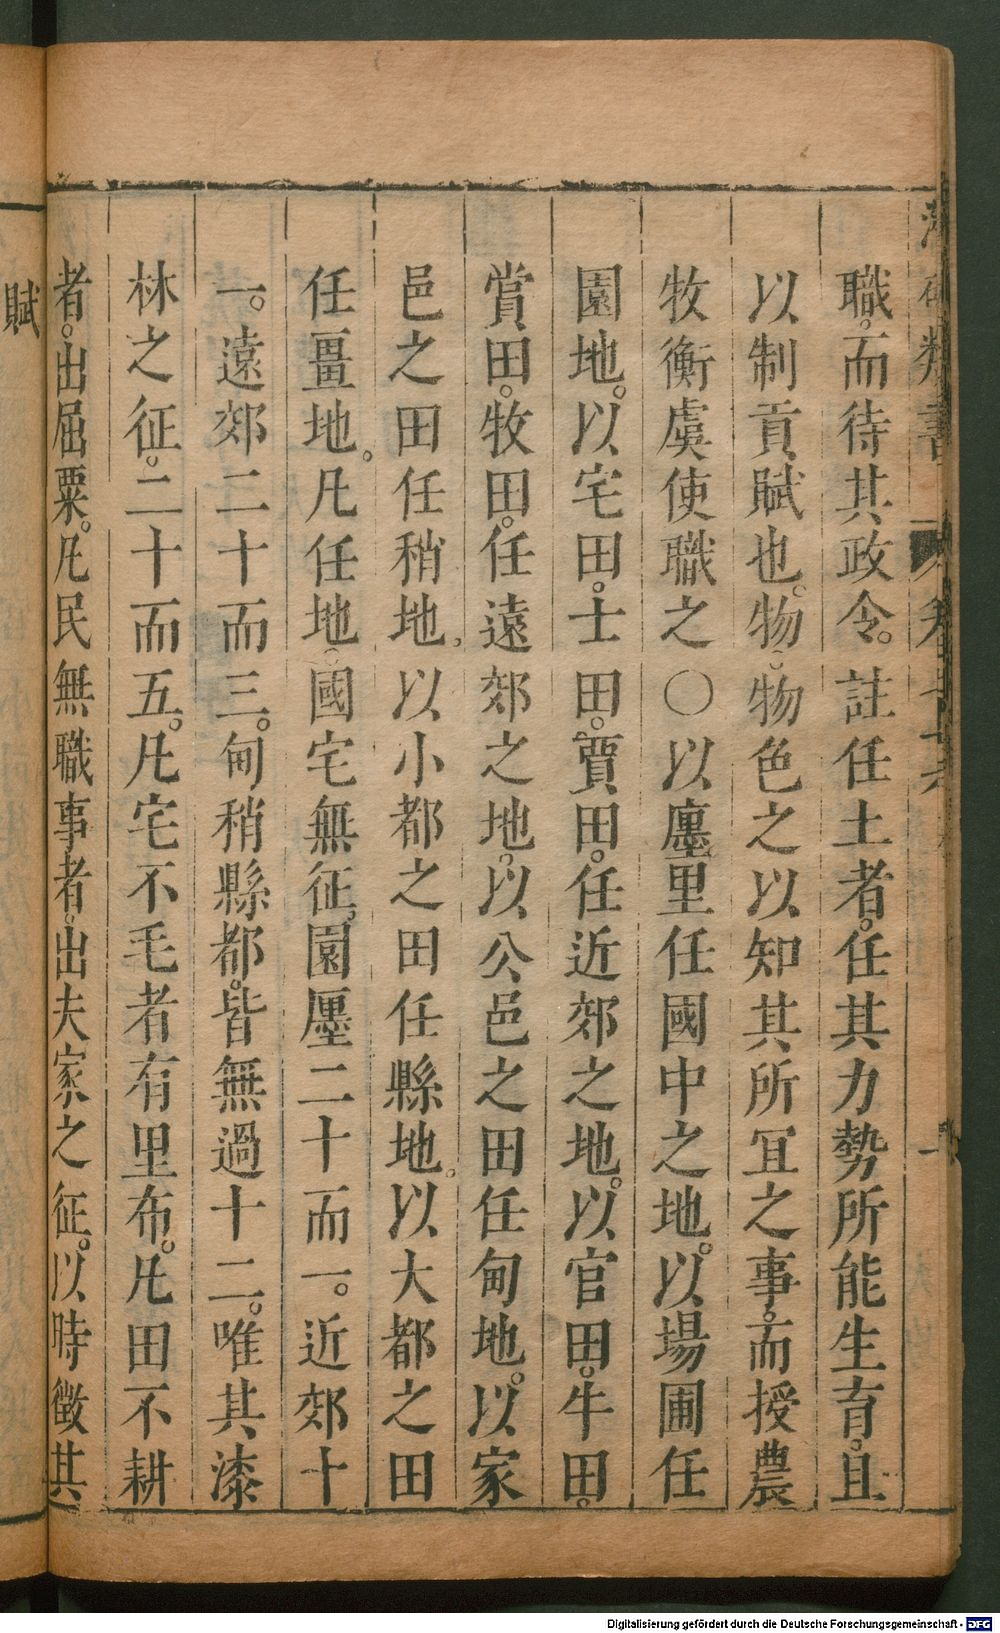 職。而待其政令。註任土者。任其力勢所能生育。且
以制貢賦也。物。物色之以知其所宜之事。而授農
牧衡虞使職之〇以廛里任國中之地。以場圃任
園地。以宅田。士田。賈田。任近郊之地。以官田。牛田。
賞田。牧田。任遠郊之地。以公邑之田任甸地。以家
邑之田任稍地。以小都之田任縣地。以大都之田
任畺地。凡任地。國宅無征。園廛二十而一。近郊十
一。遠郊二十而三。甸稍縣都。皆無過十二。唯其漆
林之征。二十而五。凡宅不毛者有里布。凡田不耕
者。出屈粟。凡民無職事者。出夫家之征。以時徵其
賦
Digitalisierung gefördert durch die Deutsche Forschungsgemeinschaft - DFG